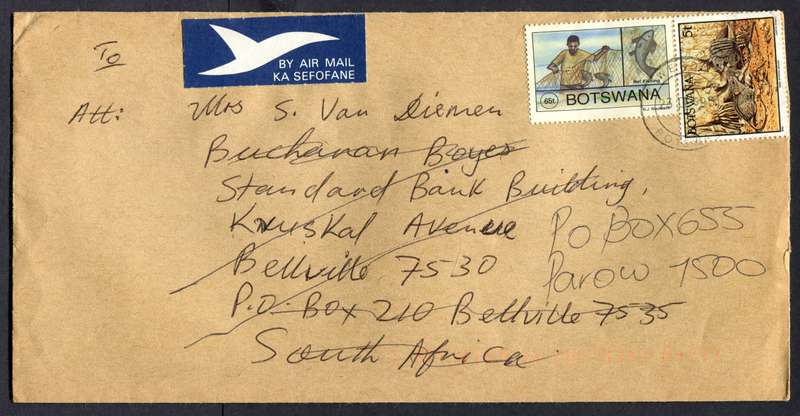 To
BY AIR MAIL
KA SEFOFANE
65t
BOTSWANA
BOTSWANA
5t
Att: Mrs S. Van Diemen
Buchanan Boyes
Standard Bank Building,
Kruskal Avenue
Bellville 7530
P.O. Box 210 Bellville 7535
South Africa
Po Box 655
Parow 7500